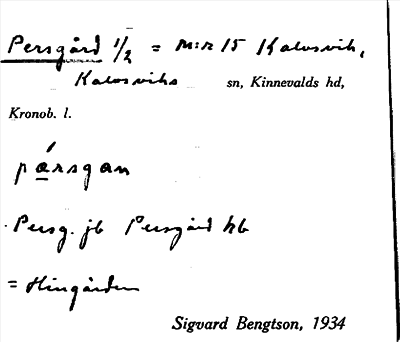 Persgård 1/2 = m:r 15 Kalvsvik,
Kalvsviks sn, Kinnevalds hd,
Kronob. l.
pársgan
Persg. jb Persgård hb
= Hingården
Sigvard Bengtson, 1934